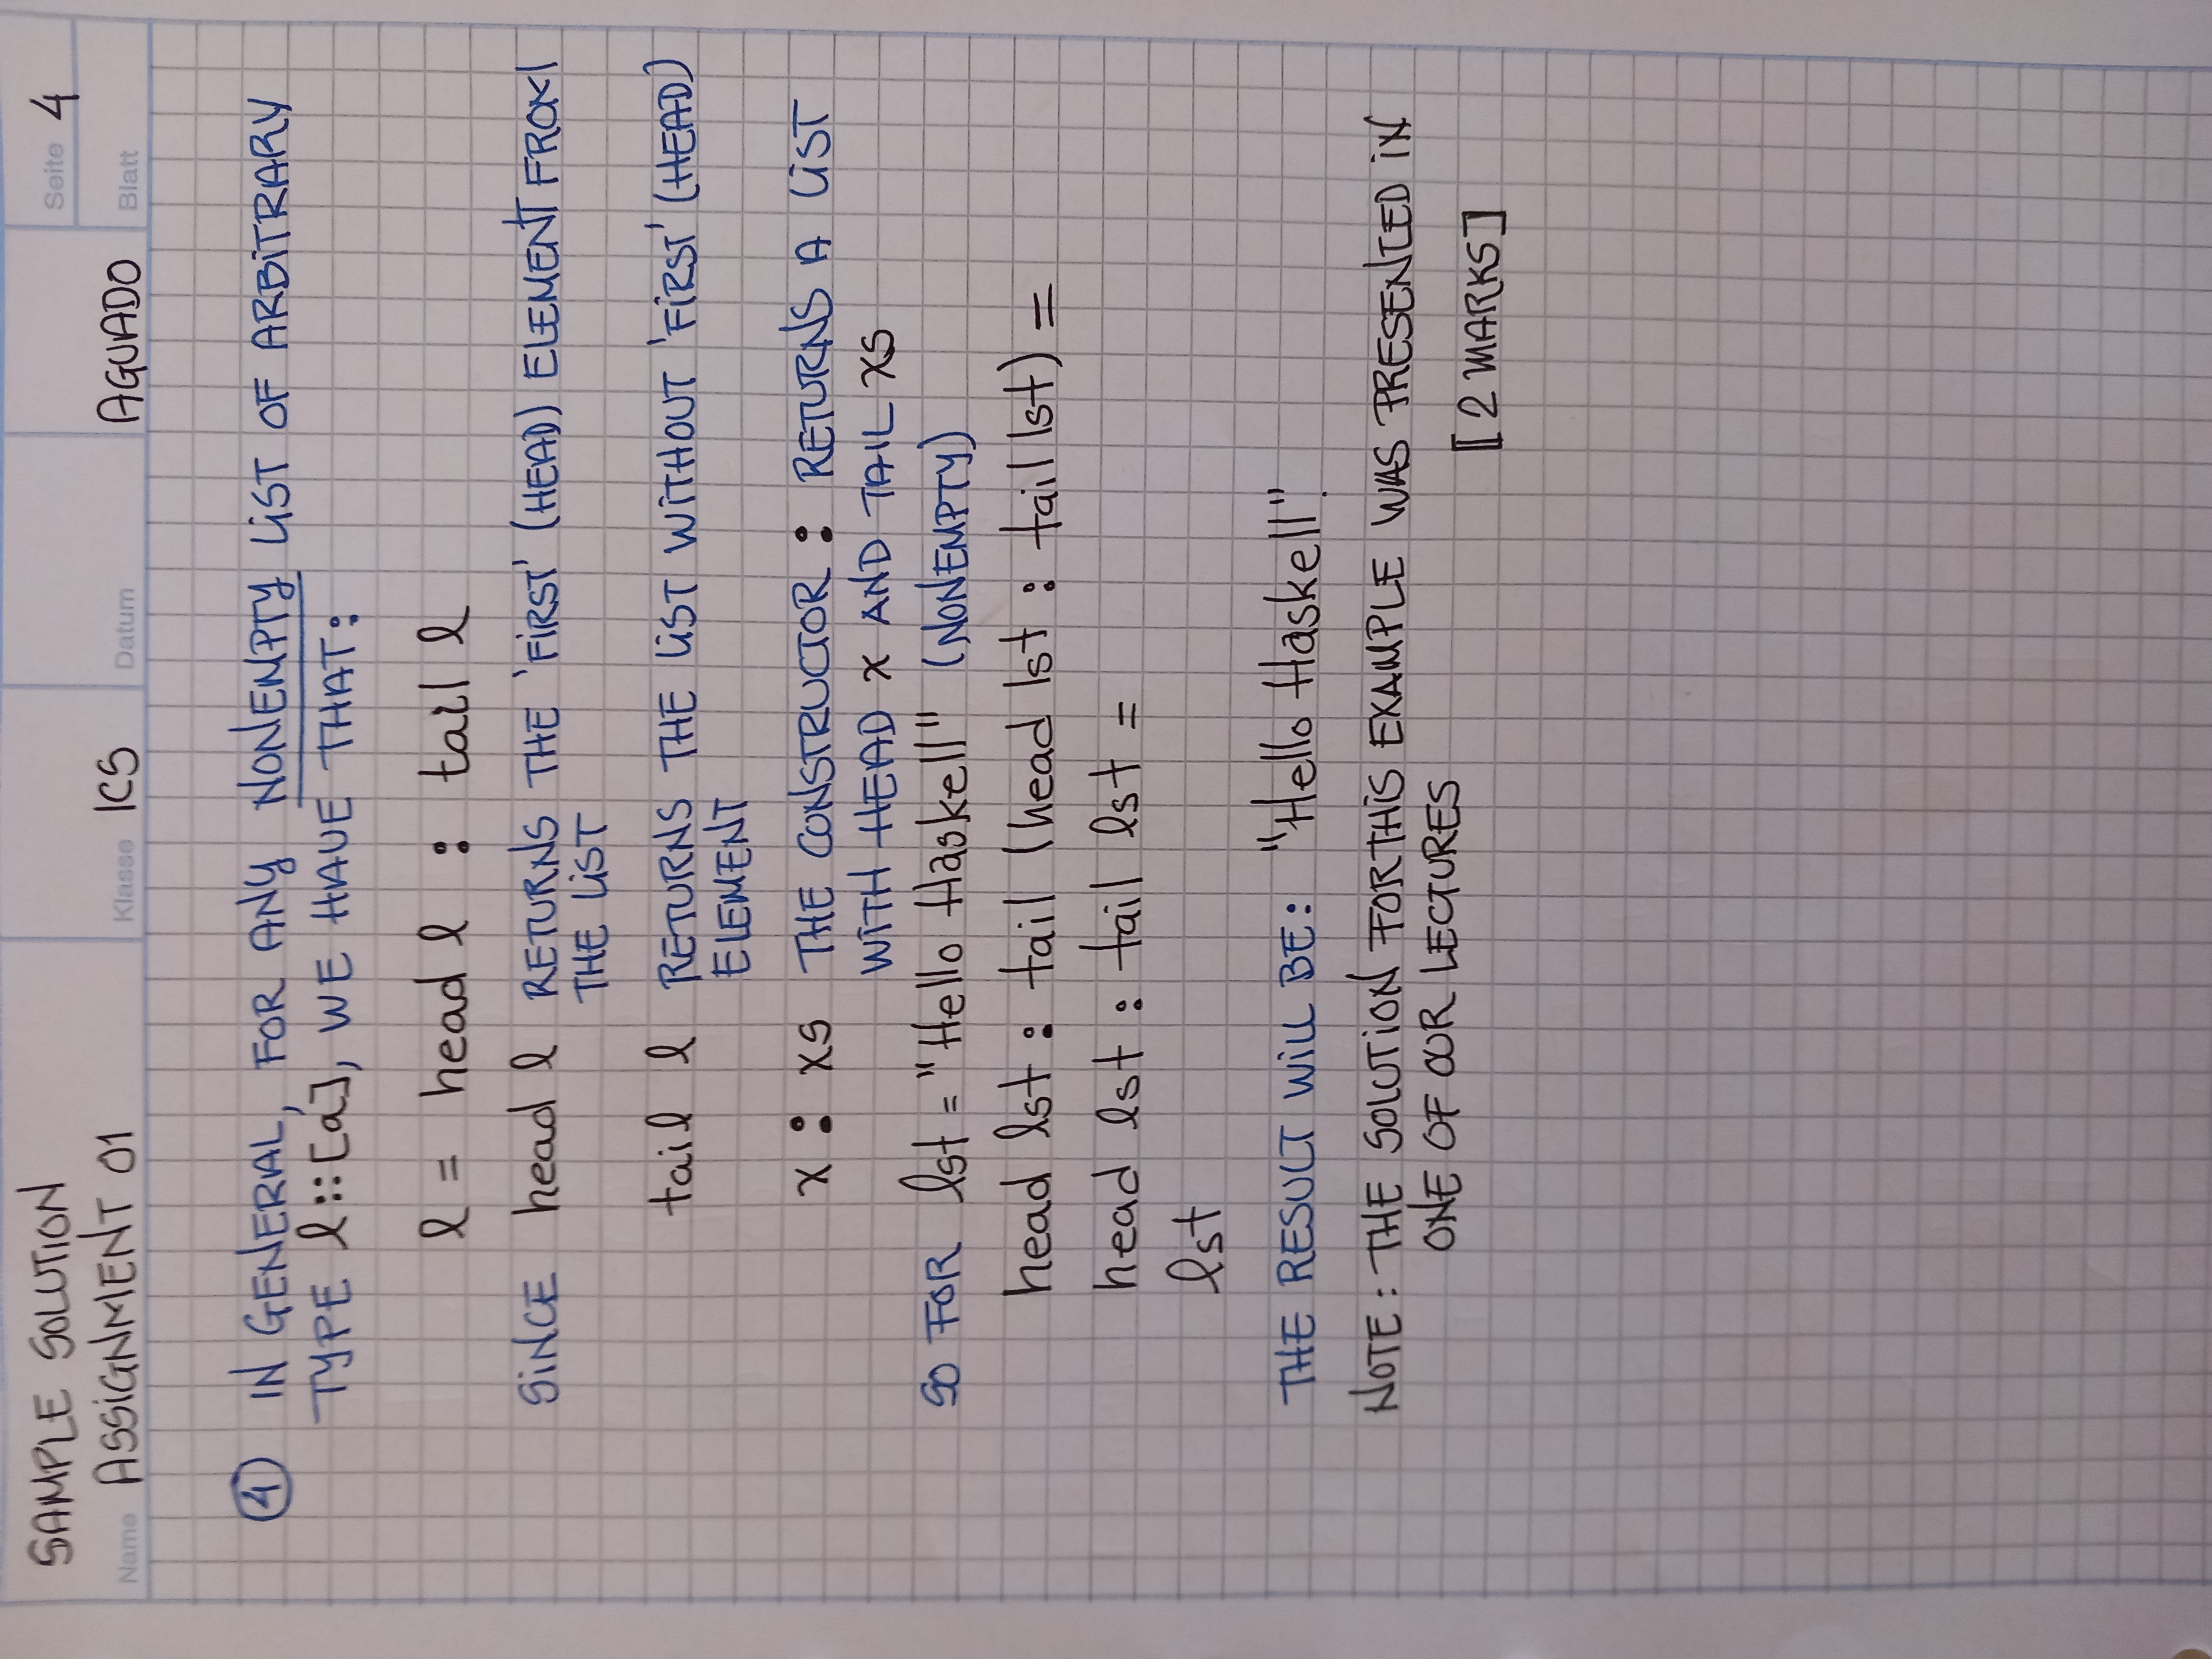 SAMPLE SOLUTION
Seite 4
Name ASSIGNMENT 01 Klasse ICS Datum AGUADO Blatt
4 IN GENERAL, FOR ANY NONEMPTY LIST OF ARBITRARY
TYPE l::[a], WE HAVE THAT:
l = head l : tail l
SINCE head l RETURNS THE 'FIRST' (HEAD) ELEMENT FROM
THE LIST
tail l RETURNS THE LIST WITHOUT 'FIRST' (HEAD)
ELEMENT
x : xs THE CONSTRUCTOR : RETURNS A LIST
WITH HEAD x AND TAIL xs
SO FOR lst = "Hello Haskell" (NONEMPTY)
head lst : tail (head lst : tail lst) =
head lst : tail lst =
lst
THE RESULT WILL BE: "Hello Haskell".
NOTE: THE SOLUTION FOR THIS EXAMPLE WAS PRESENTED IN
ONE OF OUR LECTURES
[2 MARKS]